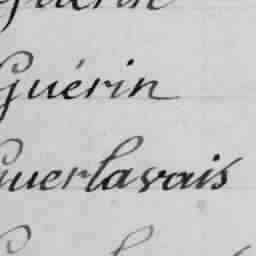 Guérin
Guérin
Guerlavais